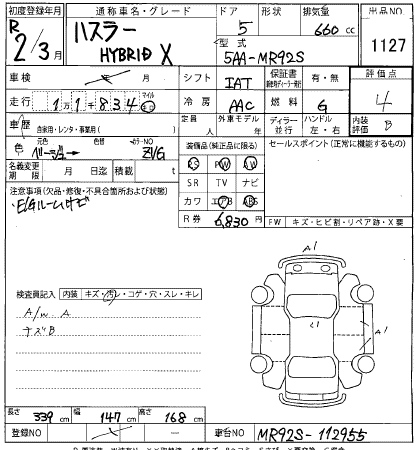 初度登録年月 通称車名・グレード ドア 形状 排気量 出品NO
R2/3月 ハスラー HYBRID X 5 660cc 1127
型式 5AA-MR92S
車検 年 月 シフト IAT 保証書 有・無 評価点 4
走行 1万1834 マイル km 冷房 AAC 燃料 G
車歴 自家用・レンタ・事業用( ) ディーラー 並行 ハンドル 左・右 内装評価 B
色 元色 ベージュ 色替 カラーNO ZVG 装備品(純正品に限る) セールスポイント(正常に機能するもの)
名義変更期限 月 日迄 積載 t PS PW AW
注意事項(欠品・修復・不具合箇所および状態) SR TV ナビ
E/Gルームサビ カワ エアB ABS
R券 6,830円 FW キズ・ヒビ割・リペア跡・X要
検査員記入 内装 キズ・汚レ・コゲ・穴・スレ・キレ
A/W A
キズB
A1
A1
長さ 339cm 幅 147cm 高さ 168cm
登録NO 車台NO MR92S-112955